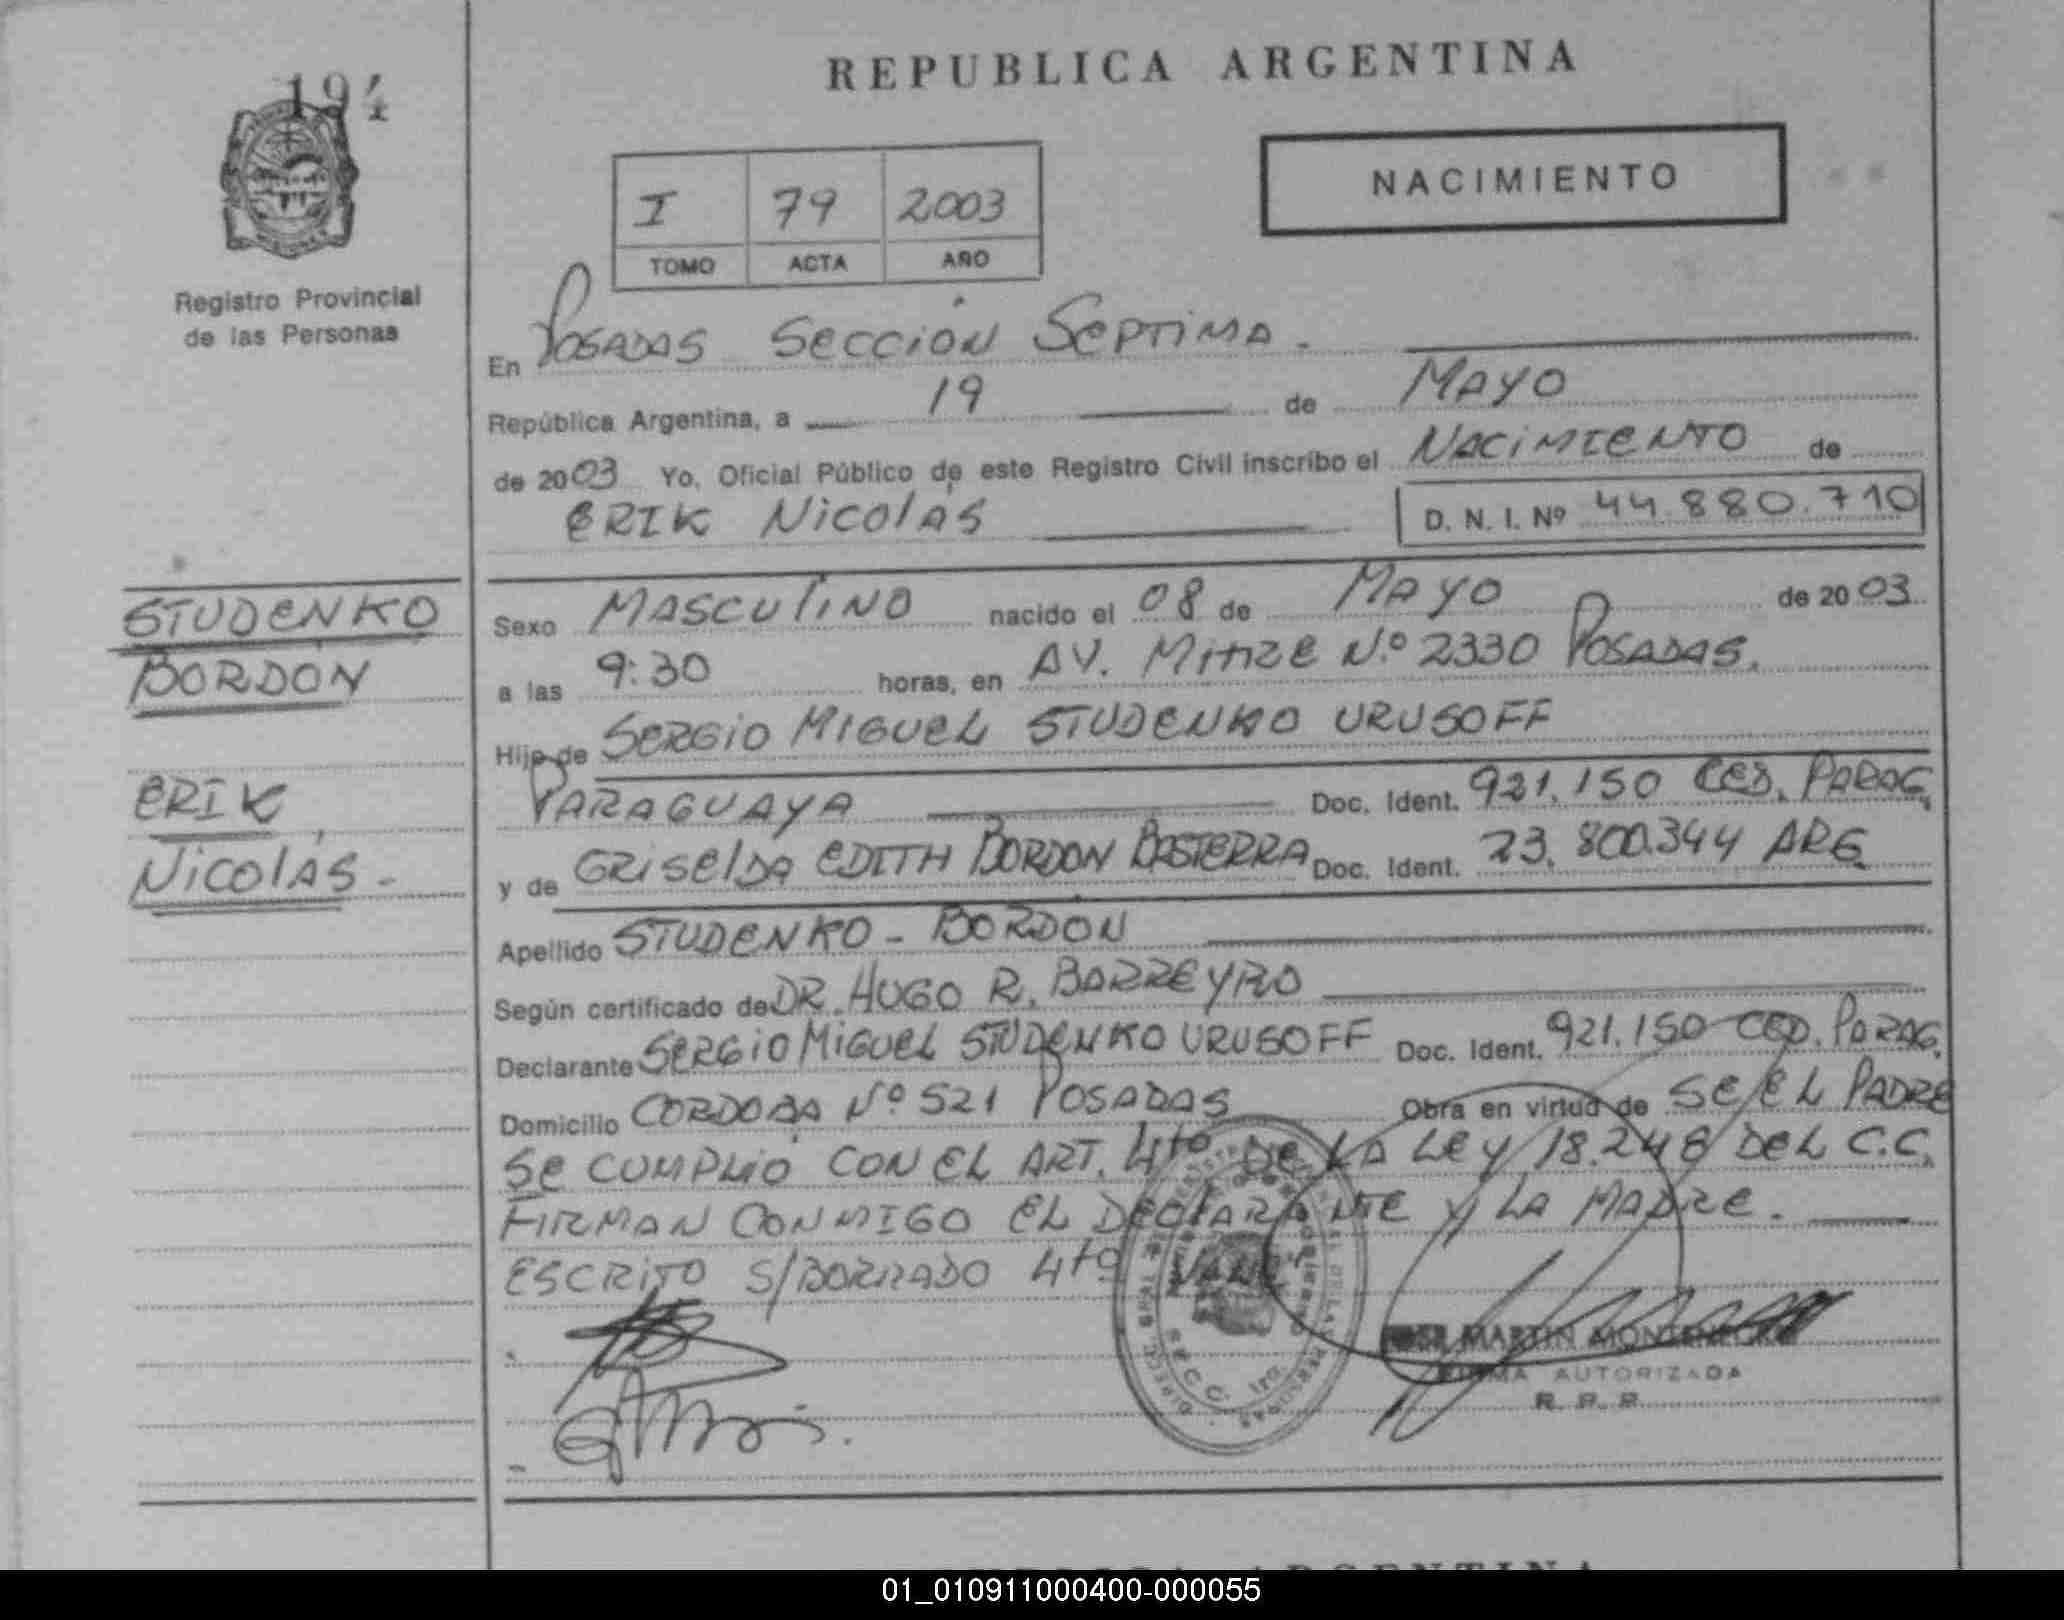 194
REPUBLICA ARGENTINA
NACIMIENTO
I 79 2003
TOMO ACTA AÑO
Registro Provincial
de las Personas
En POSADAS SECCIÓN SEPTIMA.
República Argentina, a 19 de MAYO
de 2003 Yo, Oficial Público de este Registro Civil inscribo el NACIMIENTO de
ERIK NICOLÁS D. N. I. Nº 44.880.710
STUDENKO
BORDÓN
ERIK,
NICOLÁS-
Sexo MASCULINO nacido el 08 de MAYO de 2003
a las 9:30 horas, en AV. MITRE N.º 2330 POSADAS.
Hijo de SERGIO MIGUEL STUDENKO URUSOFF
PARAGUAYA Doc. Ident. 921.150 CED. PARAG.
y de GRISELDA EDITH BORDON BASTERRA Doc. Ident. 23.800.344 ARG.
Apellido STUDENKO - BORDÓN
Según certificado de DR. HUGO R. BARREYRO
Declarante SERGIO MIGUEL STUDENKO URUSOFF Doc. Ident. 921.150 CED. PARAG.
Domicilio CORDOBA Nº 521 POSADAS Obra en virtud de SE EL PADRE
SE CUMPLIÓ CON EL ART. 4to DE LA LEY 18.248 DEL C.C.
FIRMAN CONMIGO EL DECLARANTE Y LA MADRE.
ESCRITO S/BORRADO 4to VALE
SECC. 1ra.
MARTIN MONTENEGRO
FIRMA AUTORIZADA
R. P. P.
01_010911000400-000055